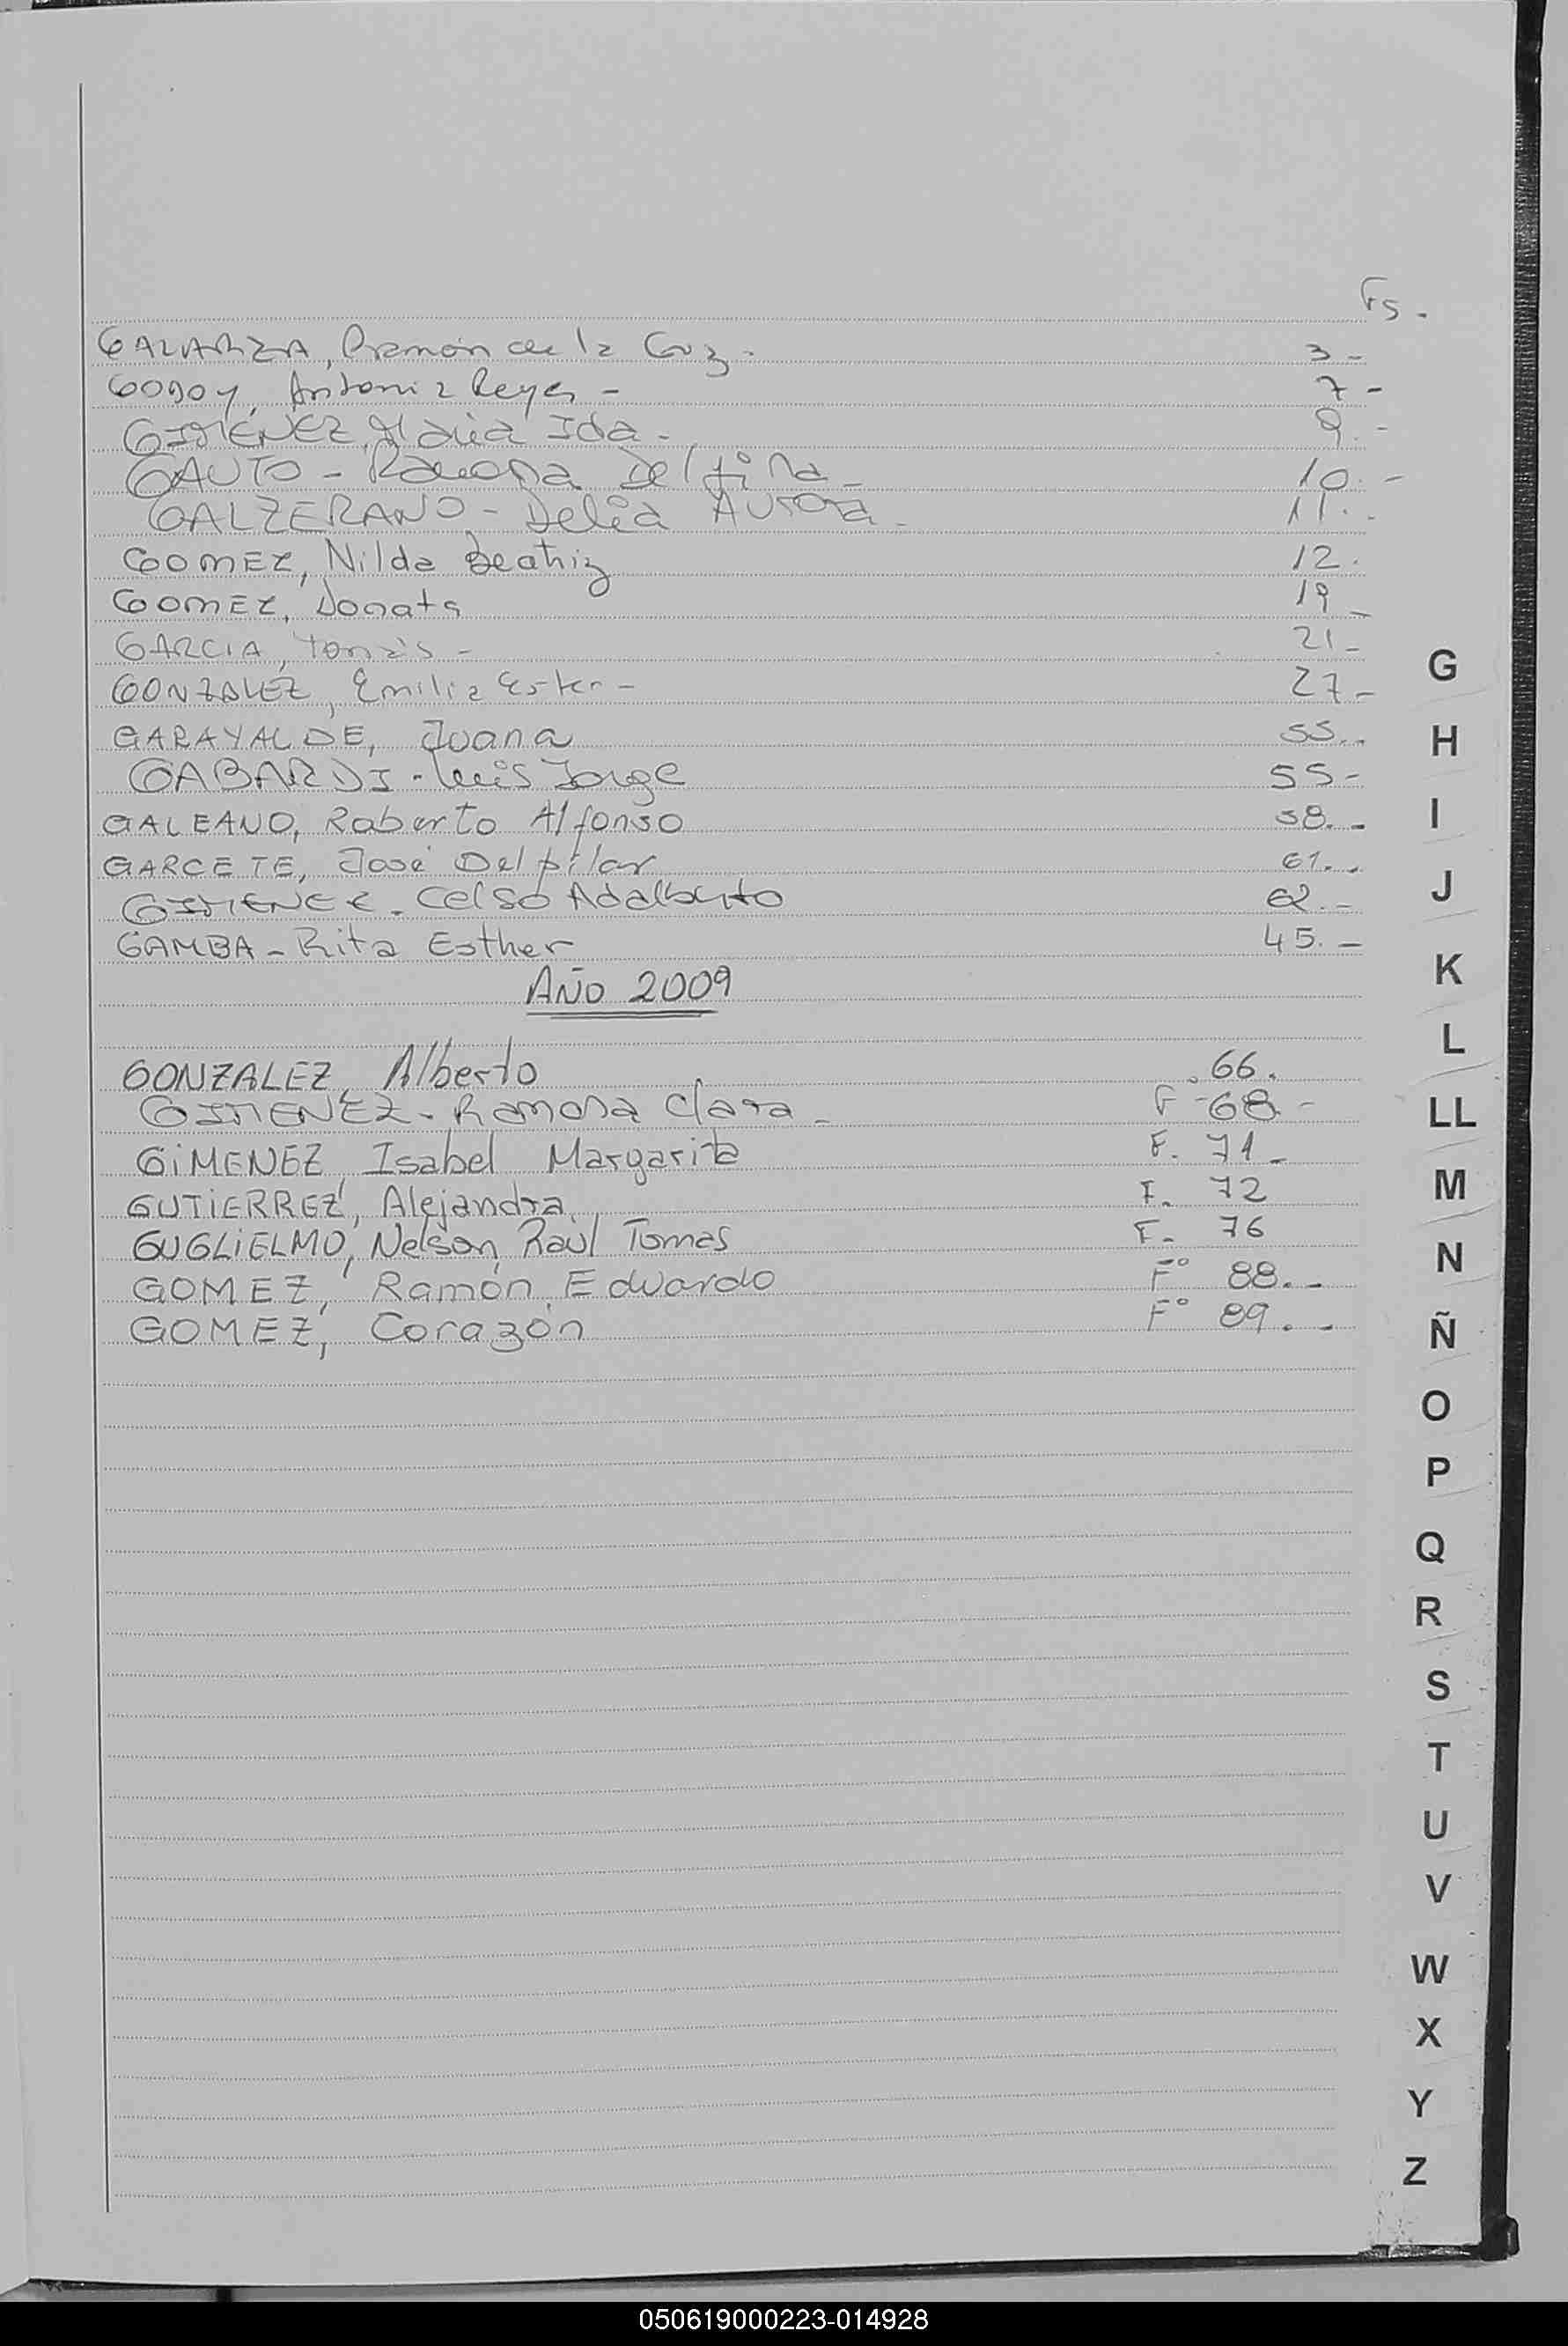 Fs.
GALARZA, Ramón de la Cruz. 3-
GODOY, Antonia Reyes - 7-
GIMENEZ, Maria Ida. 9.-
GAUTO - Ramona Delfina - 10.-
GALZERANO - Delia Aurora - 11.-
GOMEZ, Nilda Beatriz 12.
GOMEZ, Donata 19-
GARCIA, Tomás - 21-
GONZALEZ, Emilia Ester - 27-
GARAYALDE, Juana 55..
GABARDI - Luis Jorge 55-
GALEANO, Roberto Alfonso 58.-
GARCETE, José Del pilar 61.-
GIMENEZ - Celso Adalberto 62.-
GAMBA - Rita Esther 45.-
AÑO 2009
GONZALEZ, Alberto .66.
GIMENEZ - Ramona Clara - F-68-
GiMENEZ, Isabel Margarita F. 71-
GUTiERREZ, Alejandra. F. 72
GUGLiELMO, Nelson, Raúl Tomas F- 76
GOMEZ, Ramón, Eduardo F° 88.-
GOMEZ, Corazón F° 89.-
G
H
I
J
K
L
LL
M
N
Ñ
O
P
Q
R
S
T
U
V
W
X
Y
Z
050619000223-014928